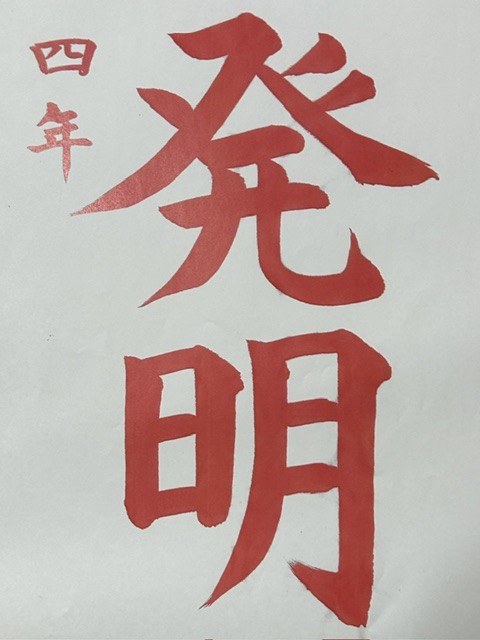 発明
四年